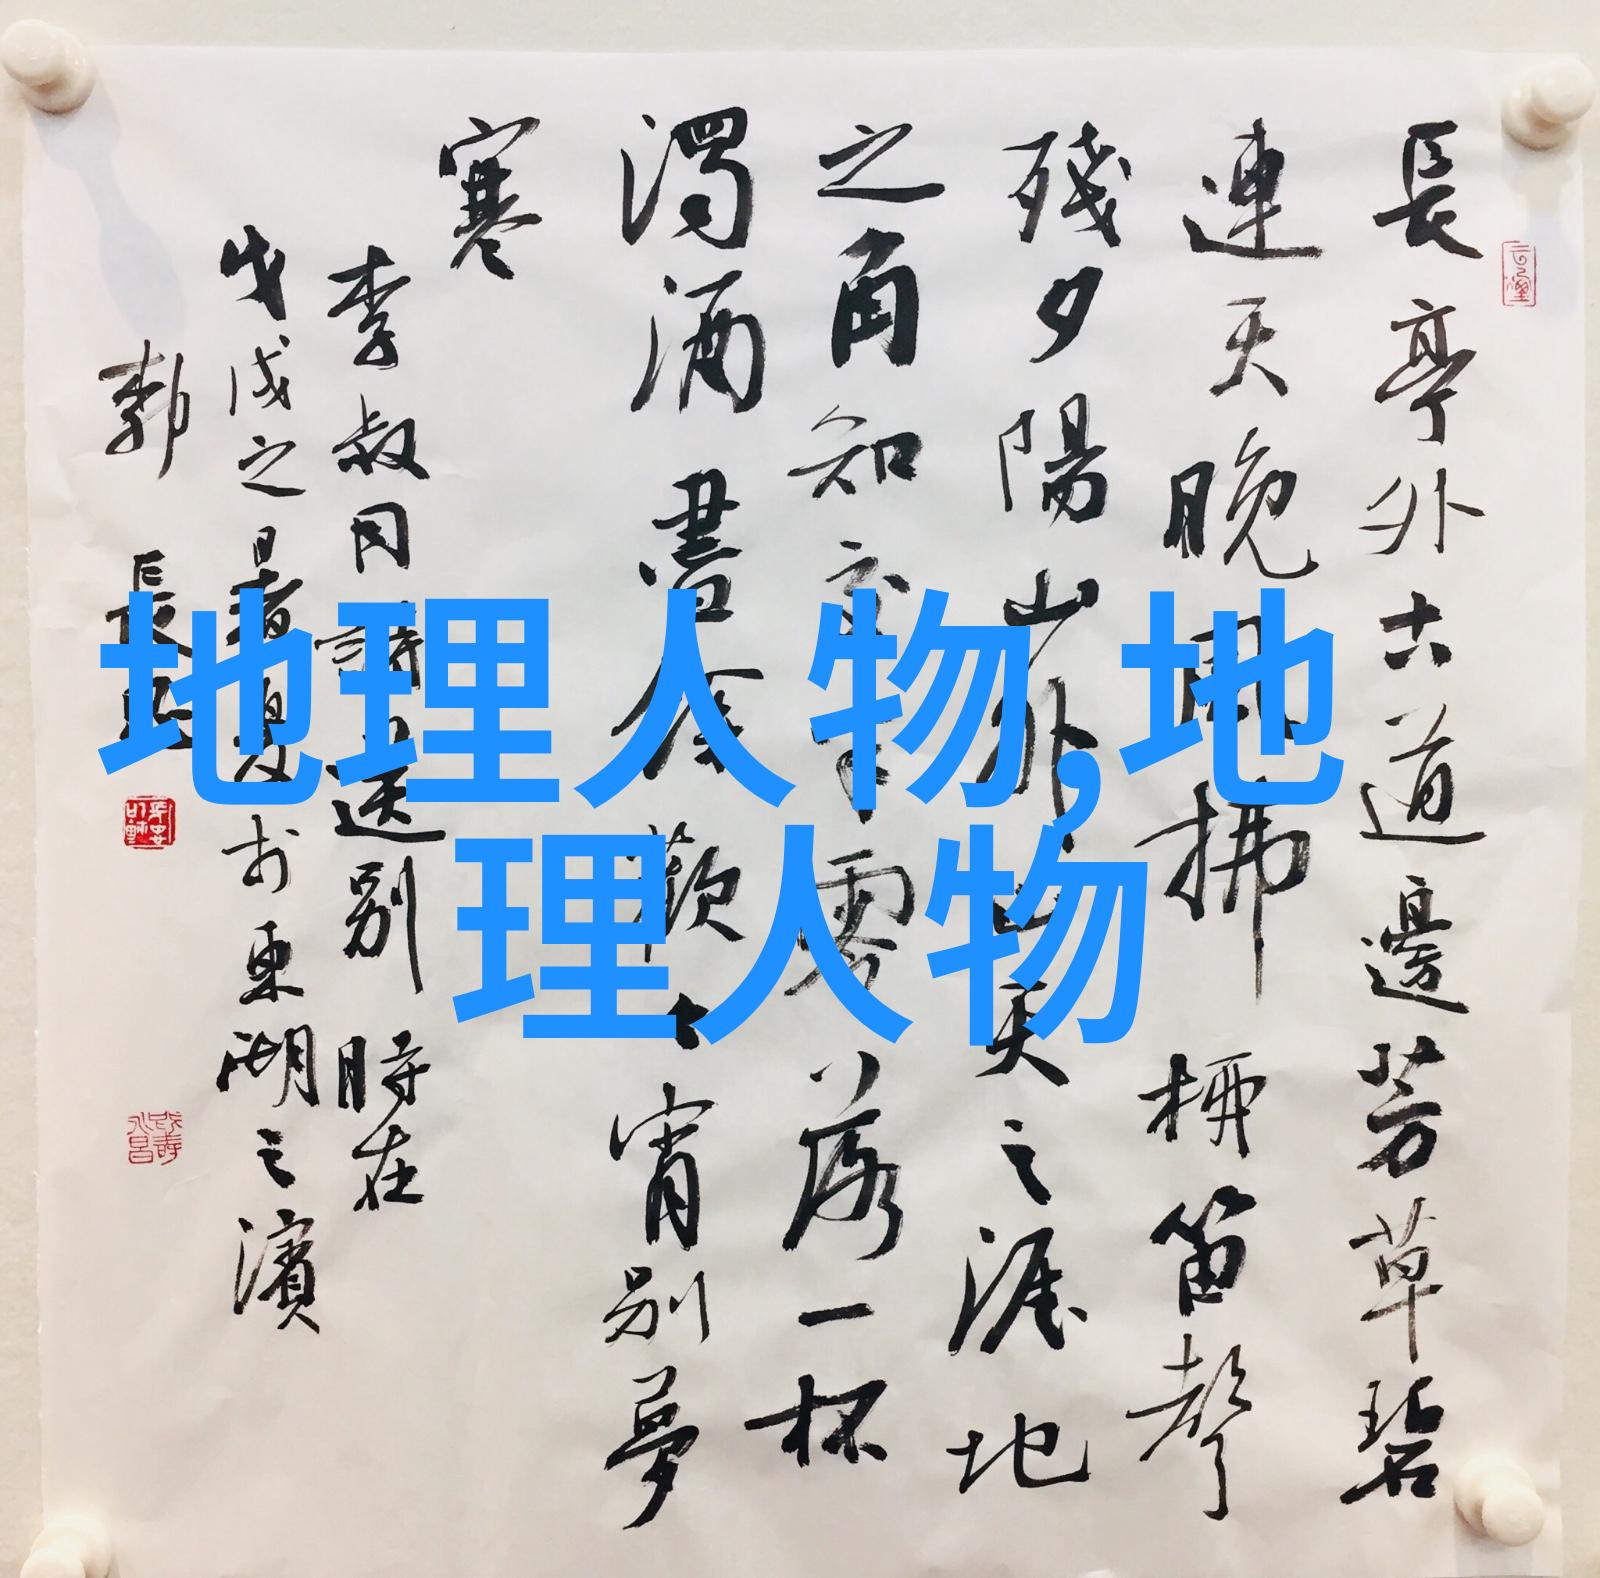 長亭外古道邊芳草碧
連天晚風拂柳笛聲
殘夕陽山外山天之涯地
之角知交半零落一杯
濁酒盡餘歡今宵別夢
寒
李叔同詩送別 時在
戊戌之暑夏於東湖之濱
長
地理人物,地
理人物